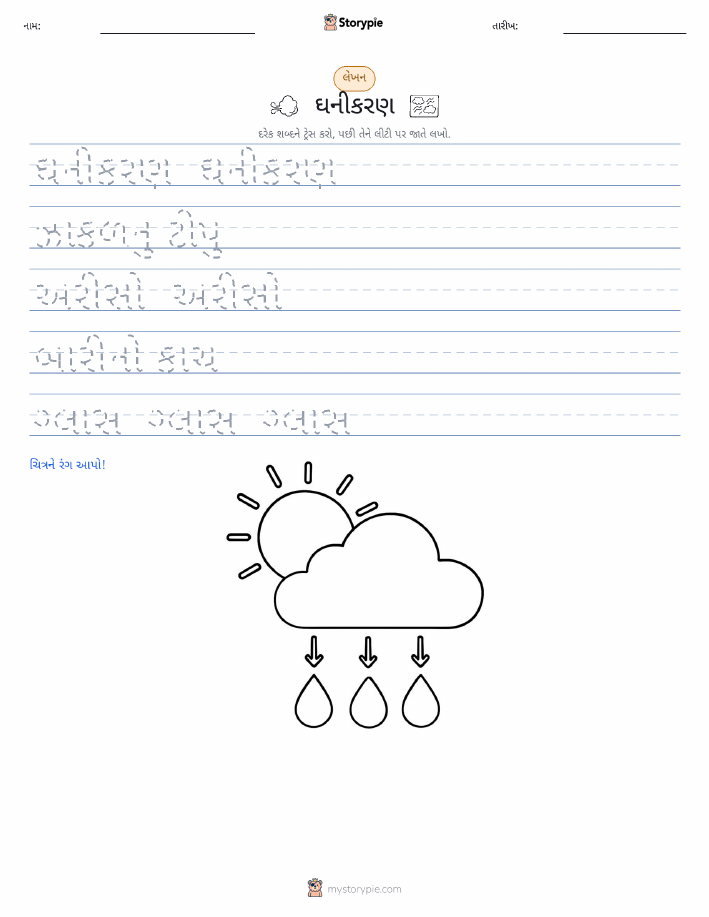 નામ:
Storypie
તારીખ:
લેખન
ઘનીકરણ
દરેક શબ્દને ટ્રેસ કરો, પછી તેને લીટી પર જાતે લખો.
ઘનીકરણ ઘનીકરણ
ઝાકળનું ટીપું
અરીસો અરીસો
બારીનો કાચ
ગ્લાસ ગ્લાસ ગ્લાસ
ચિત્રને રંગ આપો!
mystorypie.com